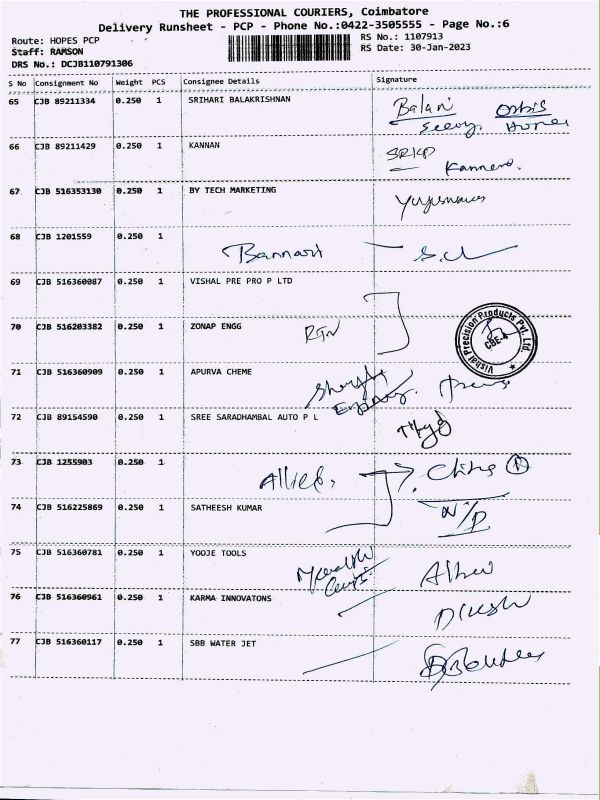 THE PROFESSIONAL COURIERS, Coimbatore
Delivery Runsheet - PCP - Phone No.:0422-3505555 - Page No.:6
Route: HOPES PCP
RS No.: 1107913
Staff: RAMSON
RS Date: 30-Jan-2023
DRS No.: DCJB110791306
S No Consignment No Weight PCS Consignee Details Signature
65 CJB 89211334 0.250 1 SRIHARI BALAKRISHNAN
66 CJB 89211429 0.250 1 KANNAN
67 CJB 516353130 0.250 1 BY TECH MARKETING
68 CJB 1201559 0.250 1 Bannari
69 CJB 516360087 0.250 1 VISHAL PRE PRO P LTD
Vishal Precision Products Pvt. Ltd.
CBE-4
70 CJB 516203382 0.250 1 ZONAP ENGG
71 CJB 516360909 0.250 1 APURVA CHEME
72 CJB 89154590 0.250 1 SREE SARADHAMBAL AUTO P L
73 CJB 1255903 0.250 1
74 CJB 516225869 0.250 1 SATHEESH KUMAR
N/D
75 CJB 516360781 0.250 1 YOOJE TOOLS
76 CJB 516360961 0.250 1 KARMA INNOVATONS
77 CJB 516360117 0.250 1 SBB WATER JET